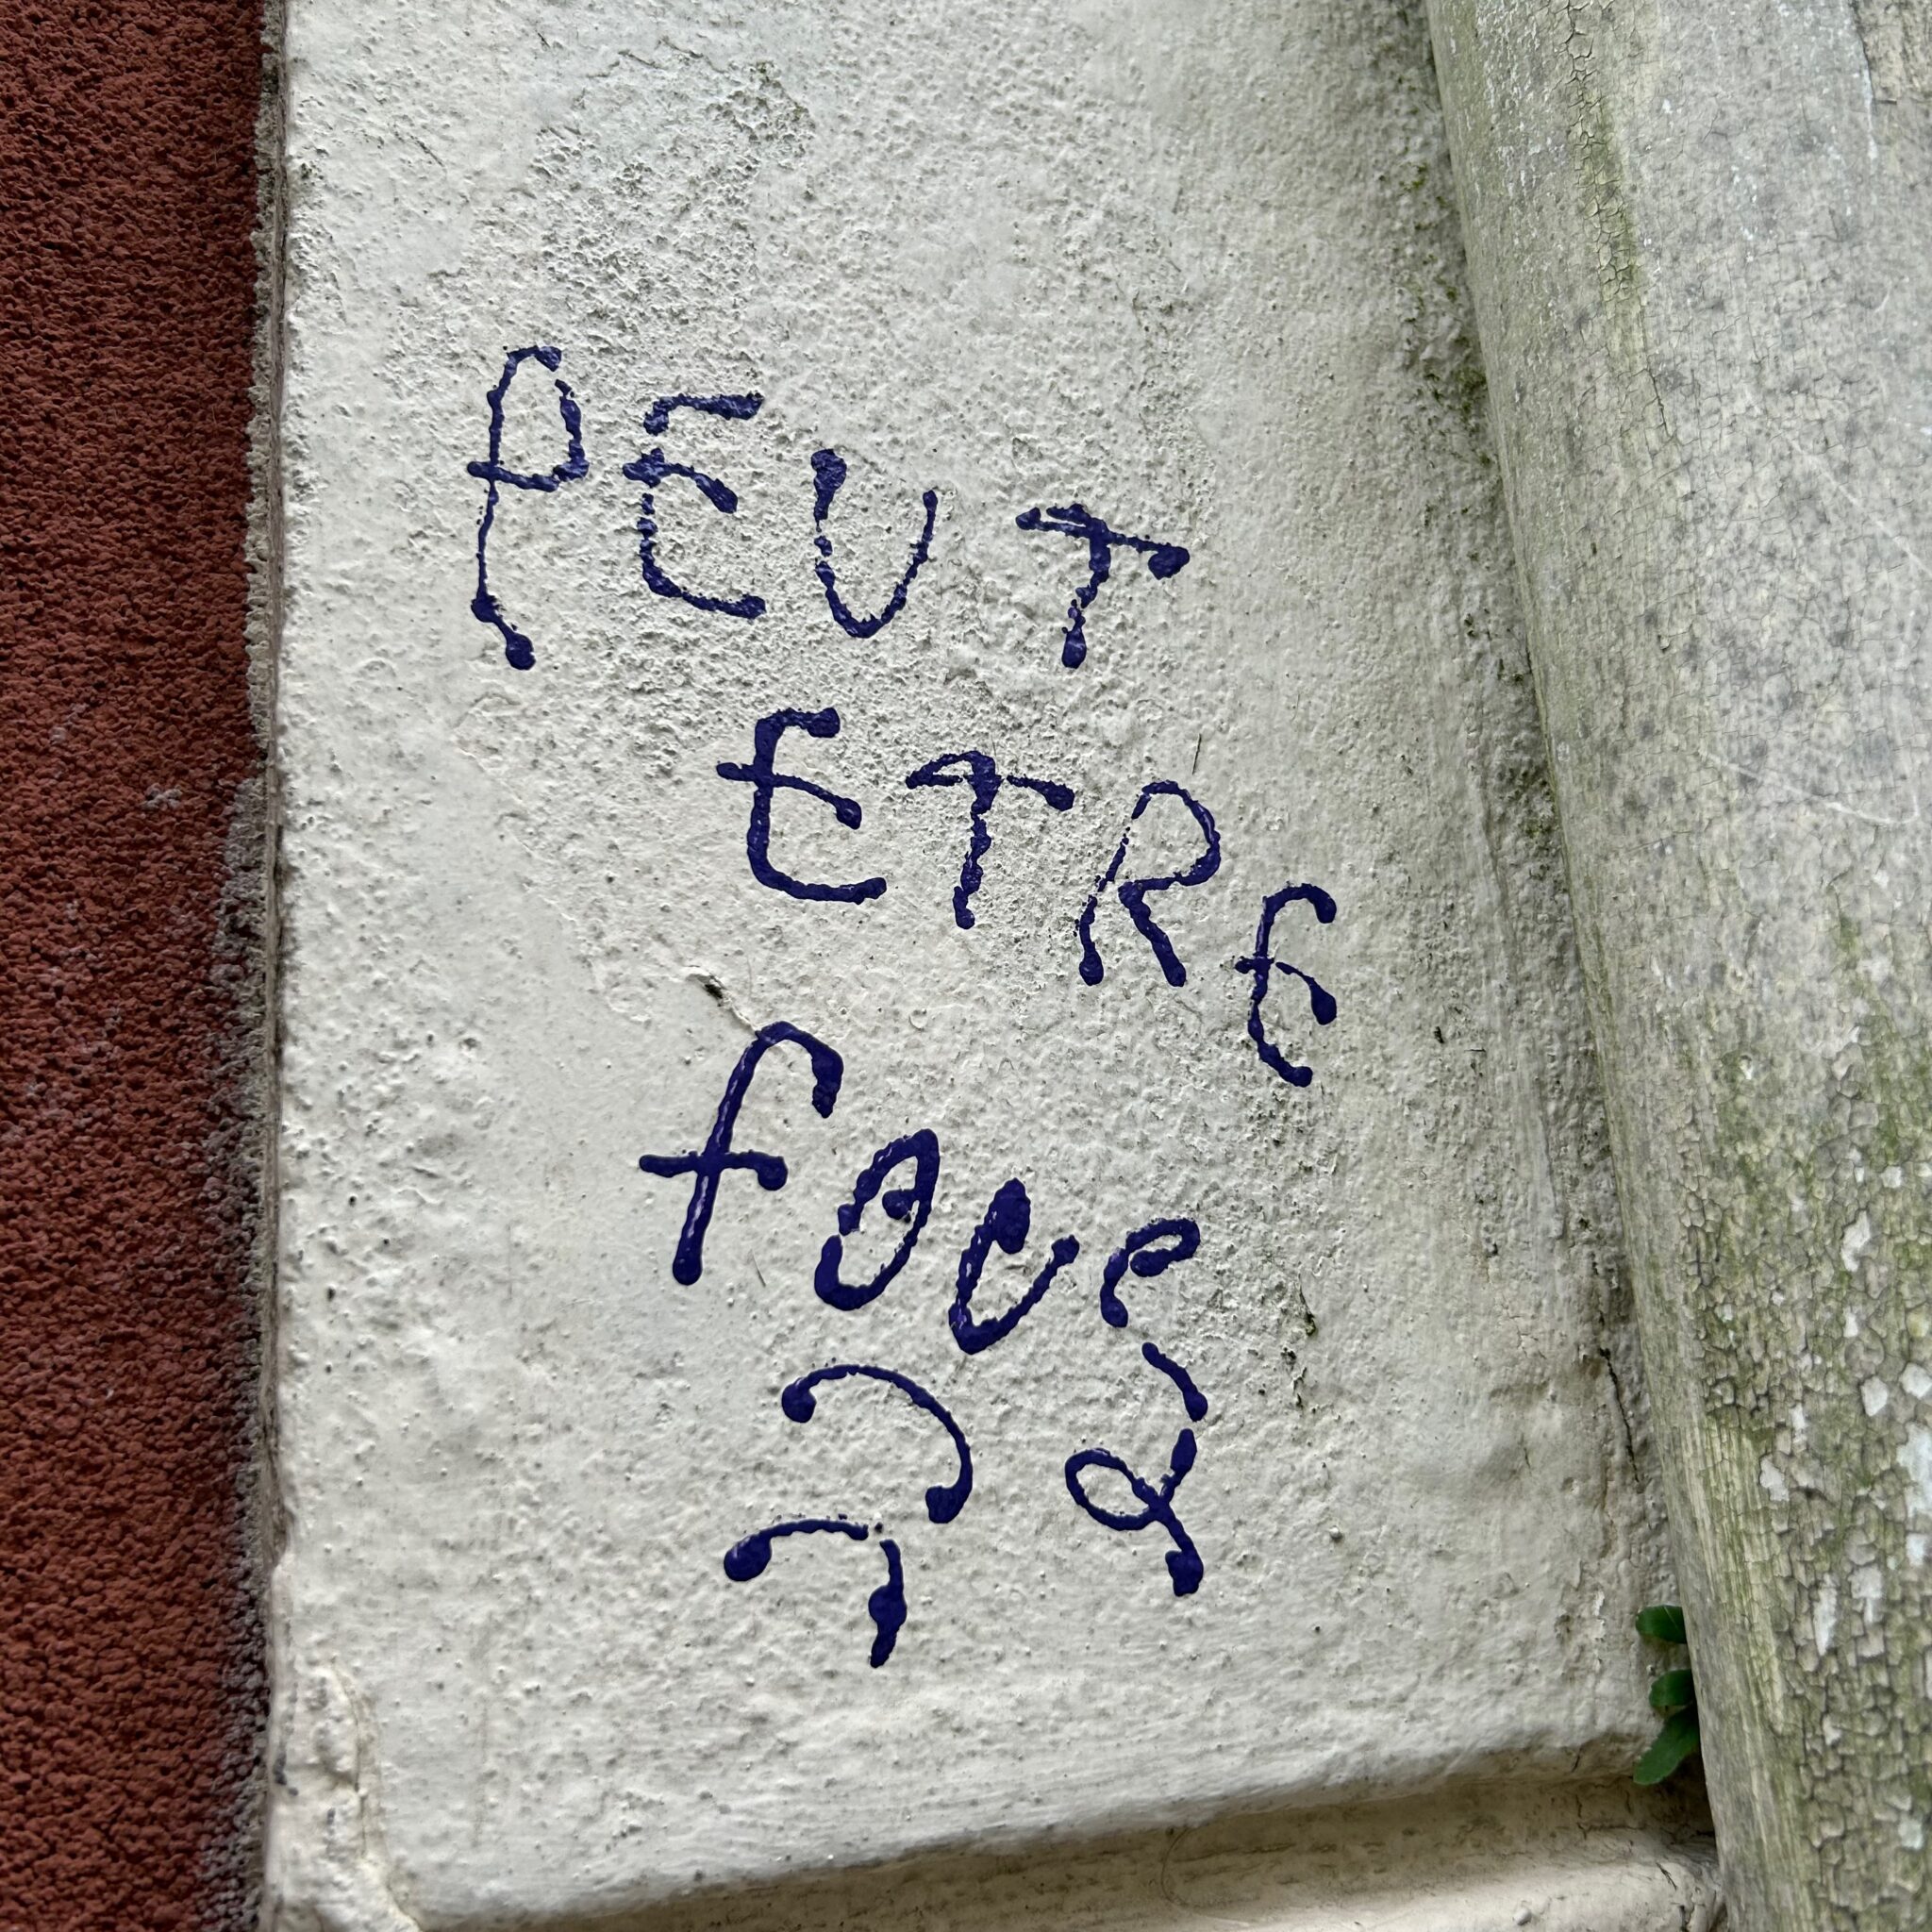 PEUT
ETRE
foue